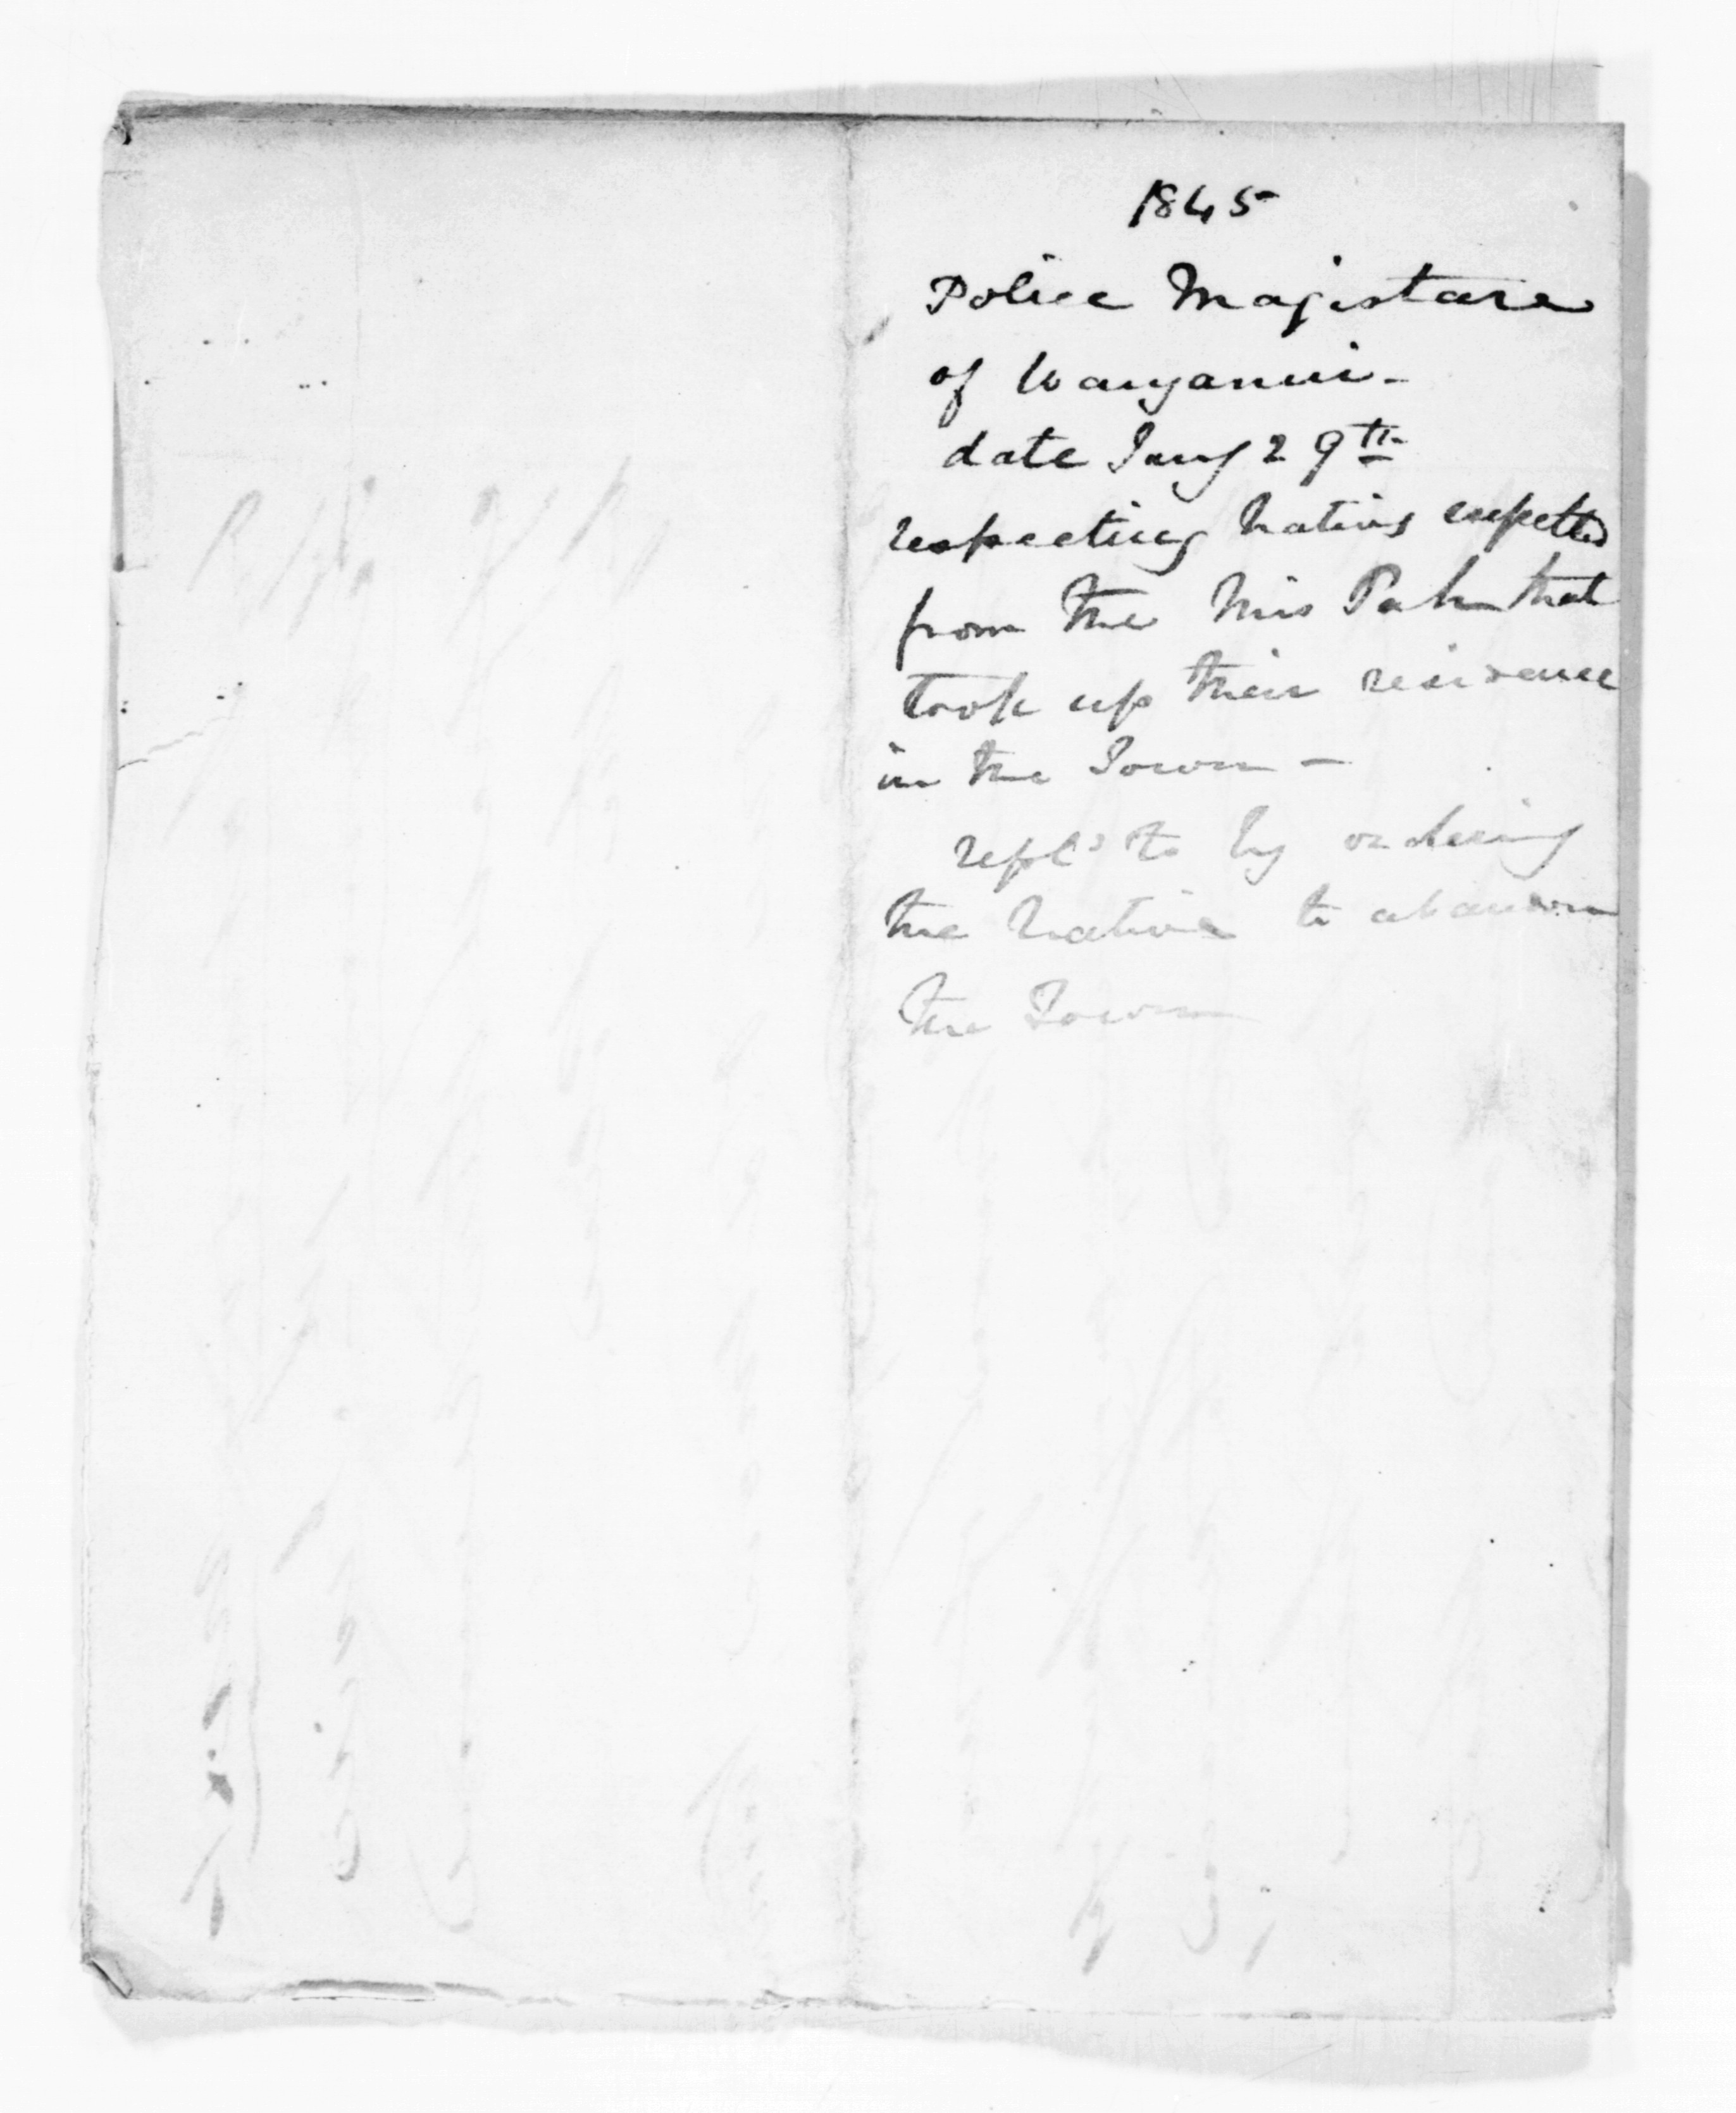 1845
Police Magistare
of Wanganui -
date Jany 29th
respecting natives expelled
from the Mis Pah that
took up their residence
in the Town -
repld to by ordering
the natives to abandon
the Town